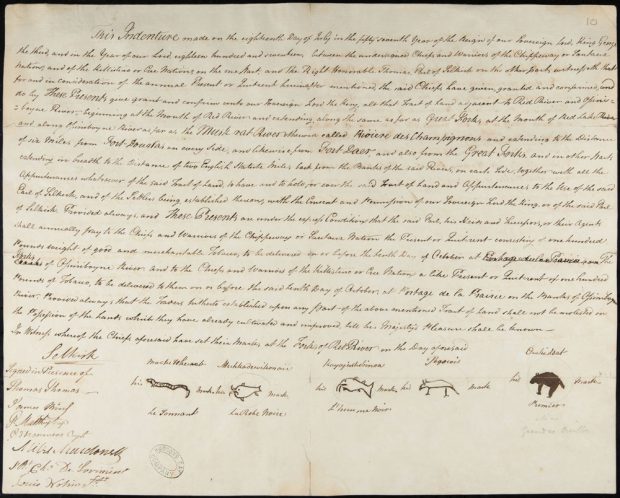 This Indenture made on the eighteenth Day of July in the fifty seventh Year of the Reign of our Sovereign Lord, King George
the third, and in the Year of our Lord, eighteen hundred and seventeen between the undersigned Chiefs and Warriors of the Chippeway or Saulteaux
Nation, and of the Killistine or Cree Nation, on the one Part, and the Right Honorable Thomas Earl of Selkirk on the other part, witnesseth that
for and in consideration of the annual Present or Quit rent hereinafter mentioned, the said Chiefs have given, granted and confirmed, and
do by These Presents give grant and confirm unto our Sovereign Lord the King, all that Tract of Land adjacent to Red River and Ossini-
boyne River, beginning at the Mouth of Red River and extending along the same as far as Great Forks, at the Mouth of Red Lake River
and along Ossiniboyne River as far as the Musk rat River otherwise called Rivière des Champignons and extending to the Distance
of six Miles from Fort Douglas on every Side, and likewise from Fort Daer, and also from the Great Forks and in other Parts
extending in breadth to the Distance of two English Statute Miles, back from the Banks of the said Rivers, on each Side, together with all the
Appurtenances whatsoever of the said Tract of Land, to have and to hold, for ever the said Tract of Land and Appurtenances to the Use of the said
Earl of Selkirk, and of the Settlers being established thereon, with the Consent and Permission of our Sovereign Lord the King or of the said Earl
of Selkirk. Provided always, and These Presents are under the express Condition that the said Earl, his Heirs and Successors, or their Agents
shall annually pay to the Chiefs and Warriors of the Chippeway or Saulteaux Nation the Present or Quit rent consisting of one hundred
Pounds weight of good and merchantable Tobacco, to be delivered on or before the tenth Day of October at the
Forks of Ossiniboyne River and to the Chiefs and Warriors of the Killistine or Cree Nation a like Present or Quit rent of one hundred
Pounds of Tobacco, to be delivered to them on or before the said tenth Day of October, at Portage de la Prairie on the Banks of Ossiniboyne
River. Provided always that the Traders hitherto established upon any Part of the above mentioned Tract of Land shall not be molested in
the Possession of the Lands which they have already cultivated and improved, till his Majesty's Pleasure shall be known
In Witness whereof the Chiefs aforesaid have set their Marks, at the Forks of Red River on the Day aforesaid
Selkirk
Signed in Presence of
Thomas Thomas
James Bird
Miles Macdonell
his mark
Le Sonnant
his mark
La Robe Noire
his mark
L'homme Noir
his mark
his mark
Premier